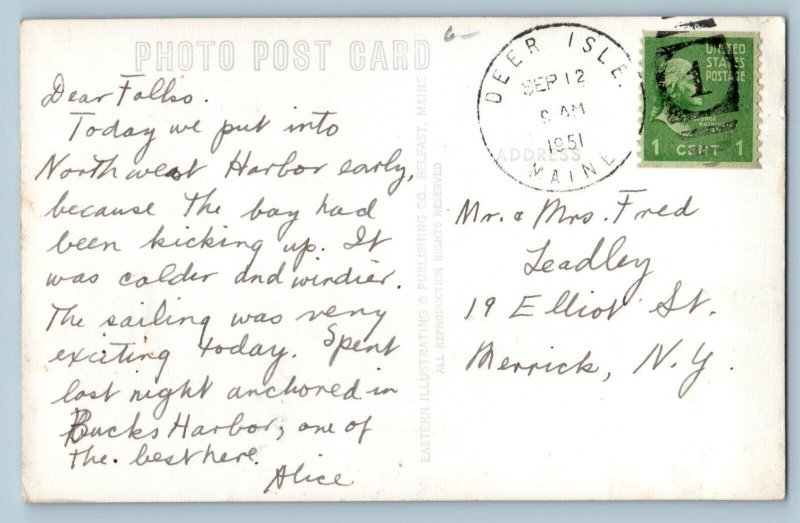 PHOTO POST CARD
Dear Folks.
Today we put into
Northwest Harbor early,
because the bay had
been kicking up. It
was colder and windier.
The sailing was very
exciting today. Spent
last night anchored in
Bucks Harbor, one of
the best here.
Alice
EASTERN ILLUSTRATING & PUBLISHING CO., BELFAST, MAINE
ALL REPRODUCTION RIGHTS RESERVED
DEER ISLE.
SEP 12
9 AM
1951
MAINE
UNITED
STATES
POSTAGE
1
1 CENT 1
ADDRESS
Mr. & Mrs. Fred
Leadley
19 Elliot St.
Merrick, N.Y.